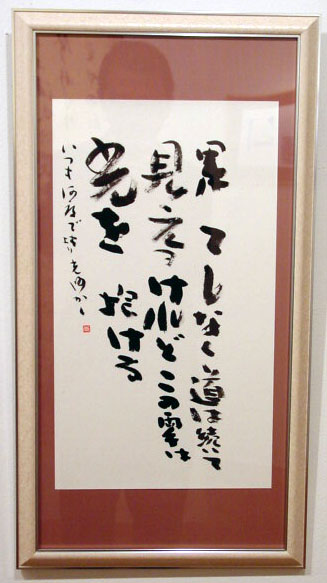 果てしなく道は続いて
見えるけれどこの両手は
光を抱ける
いつも何度で